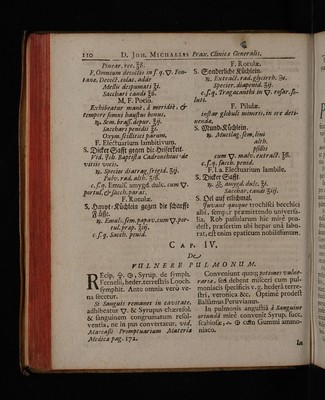 110 D. JOH. MICHAELIS Prax. Clinica Generalis.
Pinear. rec. ℥ß.
F. Omnium decoctio in s. q. ▽. Fon-
tanæ. Decoct. colat. adde
Mellis despumati ℥i.
Sacchari candi ℥ß.
M. F. Potio.
Exhibeatur manè, à meridiè, &
tempore somni haustus bonus.
Sacchari penidii ℥i.
Oxym. scillitici parum.
F. Electuarium lambitivum.
S. Dicker Safft gegen die Heiserkeit.
Vid. Joh. Baptista Codronchius de
vitiis vocis.
℞. Species diatrag. frigid. ℥ij.
Pulv. rad. alth. ʒiß.
c. s. q. Emuls. amygd. dulc. cum ▽.
portul. & sacch. paras.
F. Rotulæ.
S. Haupt-Küchlein gegen die scharffe
Flüsse.
℞. Emuls. sem. papav. cum ▽. por-
tul. præp. ℥ij.
c. s. q. Sacch. penid.
F. Rotulæ.
S. Sonderliche Küchlein.
℞. Extract. rad. glycyrrh. ʒij.
Specier. diapenid. ʒij.
c. s. q. Tragacanthi in ▽. rosar. so-
luti.
F. Pilulæ.
instar globuli minoris, in ore deti-
nendæ.
S. Mund-Küchlein.
℞. Mucilag. sem. lini
alth.
psillii
cum ▽. malv. extract. ℥ß.
c. s. q. sacch. penid.
F. l. a. Electuarium lambile.
S. Dicker Safft.
Sacchar. candi ʒiij.
S. Oel auf erstbmal.
Juvant quoque trochisci bechici
albi, semp. r. præmittendo universa-
lia. Rob passularum hic mirè pro-
dest, præsertim ubi hepar unà labo-
rat, est enim epaticum nobilissimum.
CAP. IV.
De
VULNERE PULMONUM.
Fernelii, heder. terrestris Looch.
symphit. Ante omnia verò ve-
na secetur.
Si Sanguis remanet in cavitate,
adhibeatur ▽. & Syrupus chærefol.
& sanguinem congrumatum resol-
ventia, ne in pus convertatur. vid.
Marcasii Promptuarium Materiæ
Medicæ pag. 172.
Conveniunt quoq; potiones vulne-
rariæ, sed debent misceri cum pul-
monariis specificis v. g. hederâ terre-
stri, veronica &c. Optimè prodest
Balsamus Peruvianus.
In pulmonis angustiâ à Sanguine
oriundâ mirè convenit Syrup. succ.
niaco.
In